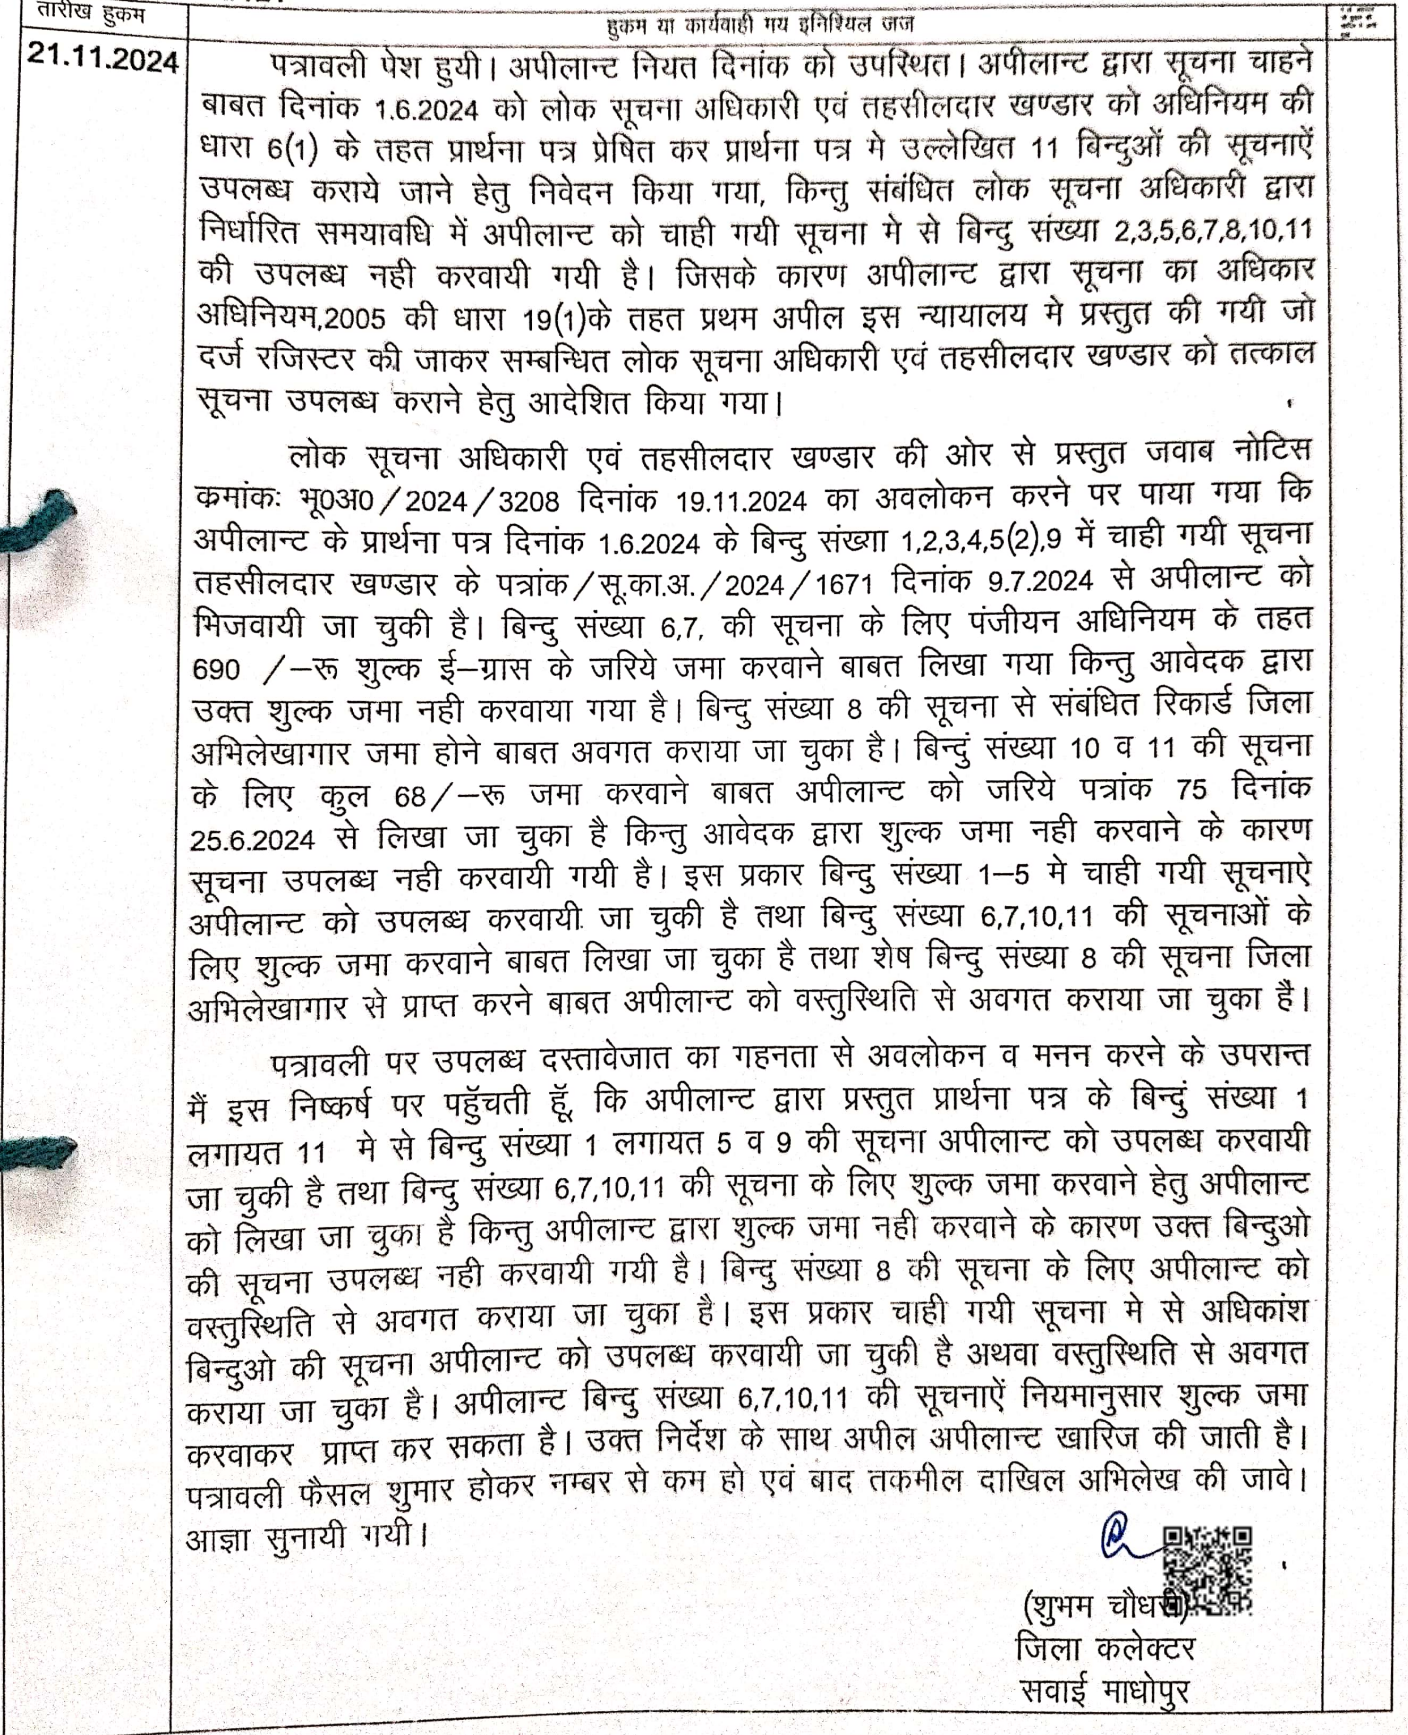 तारीख हुकम
हुकम या कार्यवाही मय इनिशियल जज
21.11.2024
पत्रावली पेश हुयी। अपीलान्ट नियत दिनांक को उपस्थित। अपीलान्ट द्वारा सूचना चाहने
बाबत दिनांक 1.6.2024 को लोक सूचना अधिकारी एवं तहसीलदार खण्डार को अधिनियम की
धारा 6(1) के तहत प्रार्थना पत्र प्रेषित कर प्रार्थना पत्र मे उल्लेखित 11 बिन्दुओं की सूचनाऐं
उपलब्ध कराये जाने हेतु निवेदन किया गया, किन्तु संबंधित लोक सूचना अधिकारी द्वारा
निर्धारित समयावधि में अपीलान्ट को चाही गयी सूचना मे से बिन्दु संख्या 2,3,5,6,7,8,10,11
की उपलब्ध नही करवायी गयी है। जिसके कारण अपीलान्ट द्वारा सूचना का अधिकार
अधिनियम,2005 की धारा 19(1)के तहत प्रथम अपील इस न्यायालय मे प्रस्तुत की गयी जो
दर्ज रजिस्टर की जाकर सम्बन्धित लोक सूचना अधिकारी एवं तहसीलदार खण्डार को तत्काल
सूचना उपलब्ध कराने हेतु आदेशित किया गया।
लोक सूचना अधिकारी एवं तहसीलदार खण्डार की ओर से प्रस्तुत जवाब नोटिस
क्रमांकः भू0अ0/2024/3208 दिनांक 19.11.2024 का अवलोकन करने पर पाया गया कि
अपीलान्ट के प्रार्थना पत्र दिनांक 1.6.2024 के बिन्दु संख्या 1,2,3,4,5(2),9 में चाही गयी सूचना
तहसीलदार खण्डार के पत्रांक/सू.का.अ./2024/1671 दिनांक 9.7.2024 से अपीलान्ट को
भिजवायी जा चुकी है। बिन्दु संख्या 6,7, की सूचना के लिए पंजीयन अधिनियम के तहत
690 /–रू शुल्क ई–ग्रास के जरिये जमा करवाने बाबत लिखा गया किन्तु आवेदक द्वारा
उक्त शुल्क जमा नही करवाया गया है। बिन्दु संख्या 8 की सूचना से संबंधित रिकार्ड जिला
अभिलेखागार जमा होने बाबत अवगत कराया जा चुका है। बिन्दुं संख्या 10 व 11 की सूचना
के लिए कुल 68/–रू जमा करवाने बाबत अपीलान्ट को जरिये पत्रांक 75 दिनांक
25.6.2024 से लिखा जा चुका है किन्तु आवेदक द्वारा शुल्क जमा नही करवाने के कारण
सूचना उपलब्ध नही करवायी गयी है। इस प्रकार बिन्दु संख्या 1–5 मे चाही गयी सूचनाऐ
अपीलान्ट को उपलब्ध करवायी जा चुकी है तथा बिन्दु संख्या 6,7,10,11 की सूचनाओं के
लिए शुल्क जमा करवाने बाबत लिखा जा चुका है तथा शेष बिन्दु संख्या 8 की सूचना जिला
अभिलेखागार से प्राप्त करने बाबत अपीलान्ट को वस्तुस्थिति से अवगत कराया जा चुका है।
पत्रावली पर उपलब्ध दस्तावेजात का गहनता से अवलोकन व मनन करने के उपरान्त
मैं इस निष्कर्ष पर पहुॅचती हूॅ, कि अपीलान्ट द्वारा प्रस्तुत प्रार्थना पत्र के बिन्दुं संख्या 1
लगायत 11 मे से बिन्दु संख्या 1 लगायत 5 व 9 की सूचना अपीलान्ट को उपलब्ध करवायी
जा चुकी है तथा बिन्दु संख्या 6,7,10,11 की सूचना के लिए शुल्क जमा करवाने हेतु अपीलान्ट
को लिखा जा चुका है किन्तु अपीलान्ट द्वारा शुल्क जमा नही करवाने के कारण उक्त बिन्दुओ
की सूचना उपलब्ध नही करवायी गयी है। बिन्दु संख्या 8 की सूचना के लिए अपीलान्ट को
वस्तुस्थिति से अवगत कराया जा चुका है। इस प्रकार चाही गयी सूचना मे से अधिकांश
बिन्दुओ की सूचना अपीलान्ट को उपलब्ध करवायी जा चुकी है अथवा वस्तुस्थिति से अवगत
कराया जा चुका है। अपीलान्ट बिन्दु संख्या 6,7,10,11 की सूचनाऐं नियमानुसार शुल्क जमा
करवाकर प्राप्त कर सकता है। उक्त निर्देश के साथ अपील अपीलान्ट खारिज की जाती है।
पत्रावली फैसल शुमार होकर नम्बर से कम हो एवं बाद तकमील दाखिल अभिलेख की जावे।
आज्ञा सुनायी गयी।
(शुभम चौधरी)
जिला कलेक्टर
सवाई माधोपुर